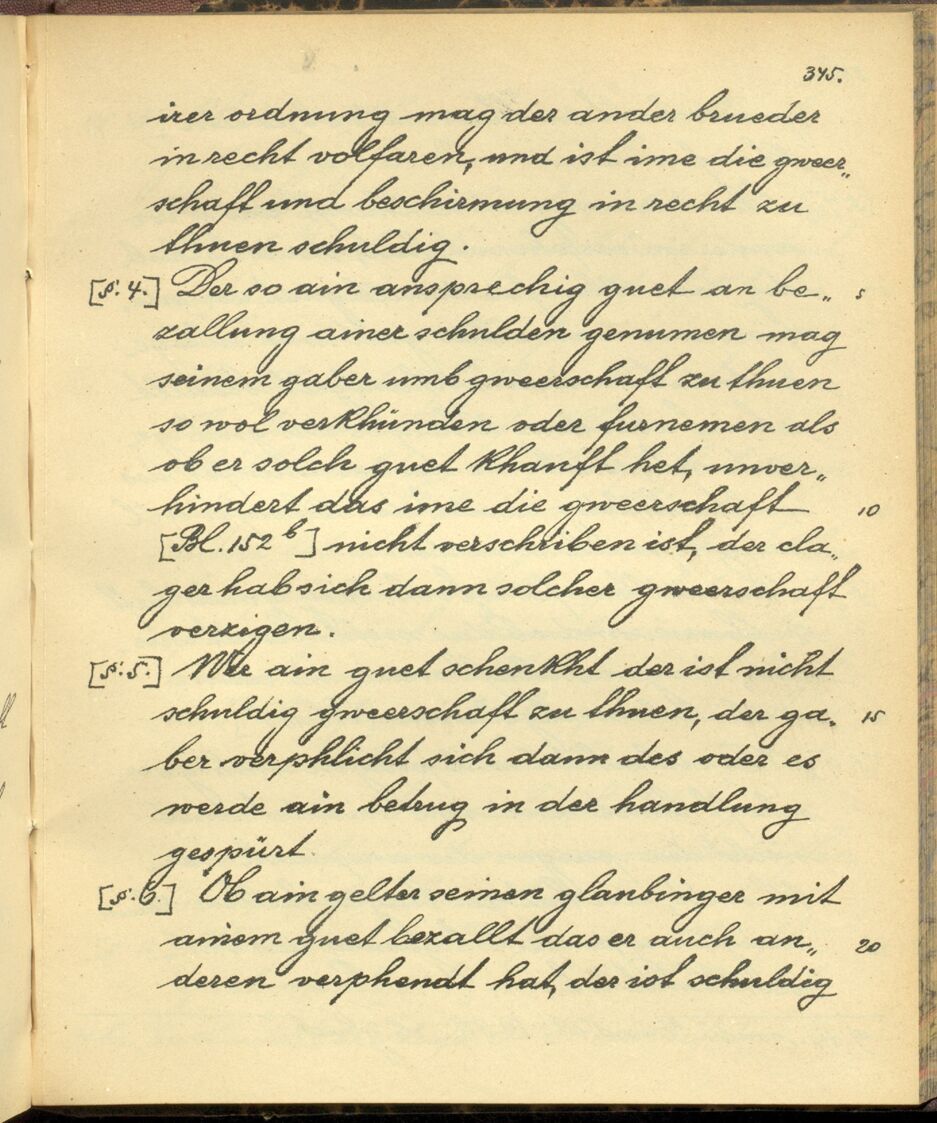 345.
irer ordnung mag der ander brueder
in recht volfaren, und ist ime die gweer„
schaft und beschirmung in recht zu
thuen schuldig.
[§. 4.] Der so ain ansprechig guet an be„ 5
zallung ainer schulden genumen mag
seinem gaber umb gweerschaft zu thuen
so wol verkhünden oder furnemen als
ob er solch guet khauft het, unver„
hindert das ime die gweerschaft 10
[Bl. 152 b] nicht verschriben ist, der cla„
ger hab sich dann solcher gweerschaft
verzigen.
[§. 5.] Wer ain guet schenkht der ist nicht
schuldig gweerschaft zu thuen, der ga„ 15
ber verphlicht sich dann des oder es
werde ain betrug in der handlung
gespürt.
[§. 6.] Ob ain gelter seinen glaubinger mit
ainem guet bezallt das er auch an„ 20
deren verphendt hat, der ist schuldig